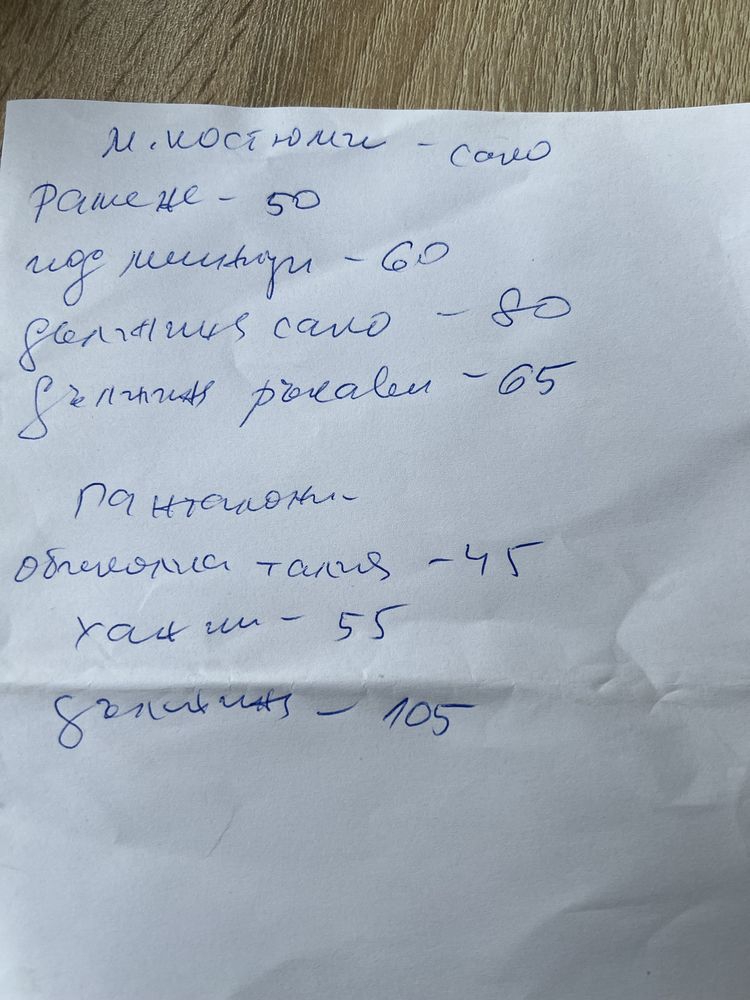 м. костюми - сако
Рамене - 50
под мишници - 60
дължина сако - 80
дължина ръкави - 65
Панталони -
обиколка талия - 45
ханш - 55
дължина - 105